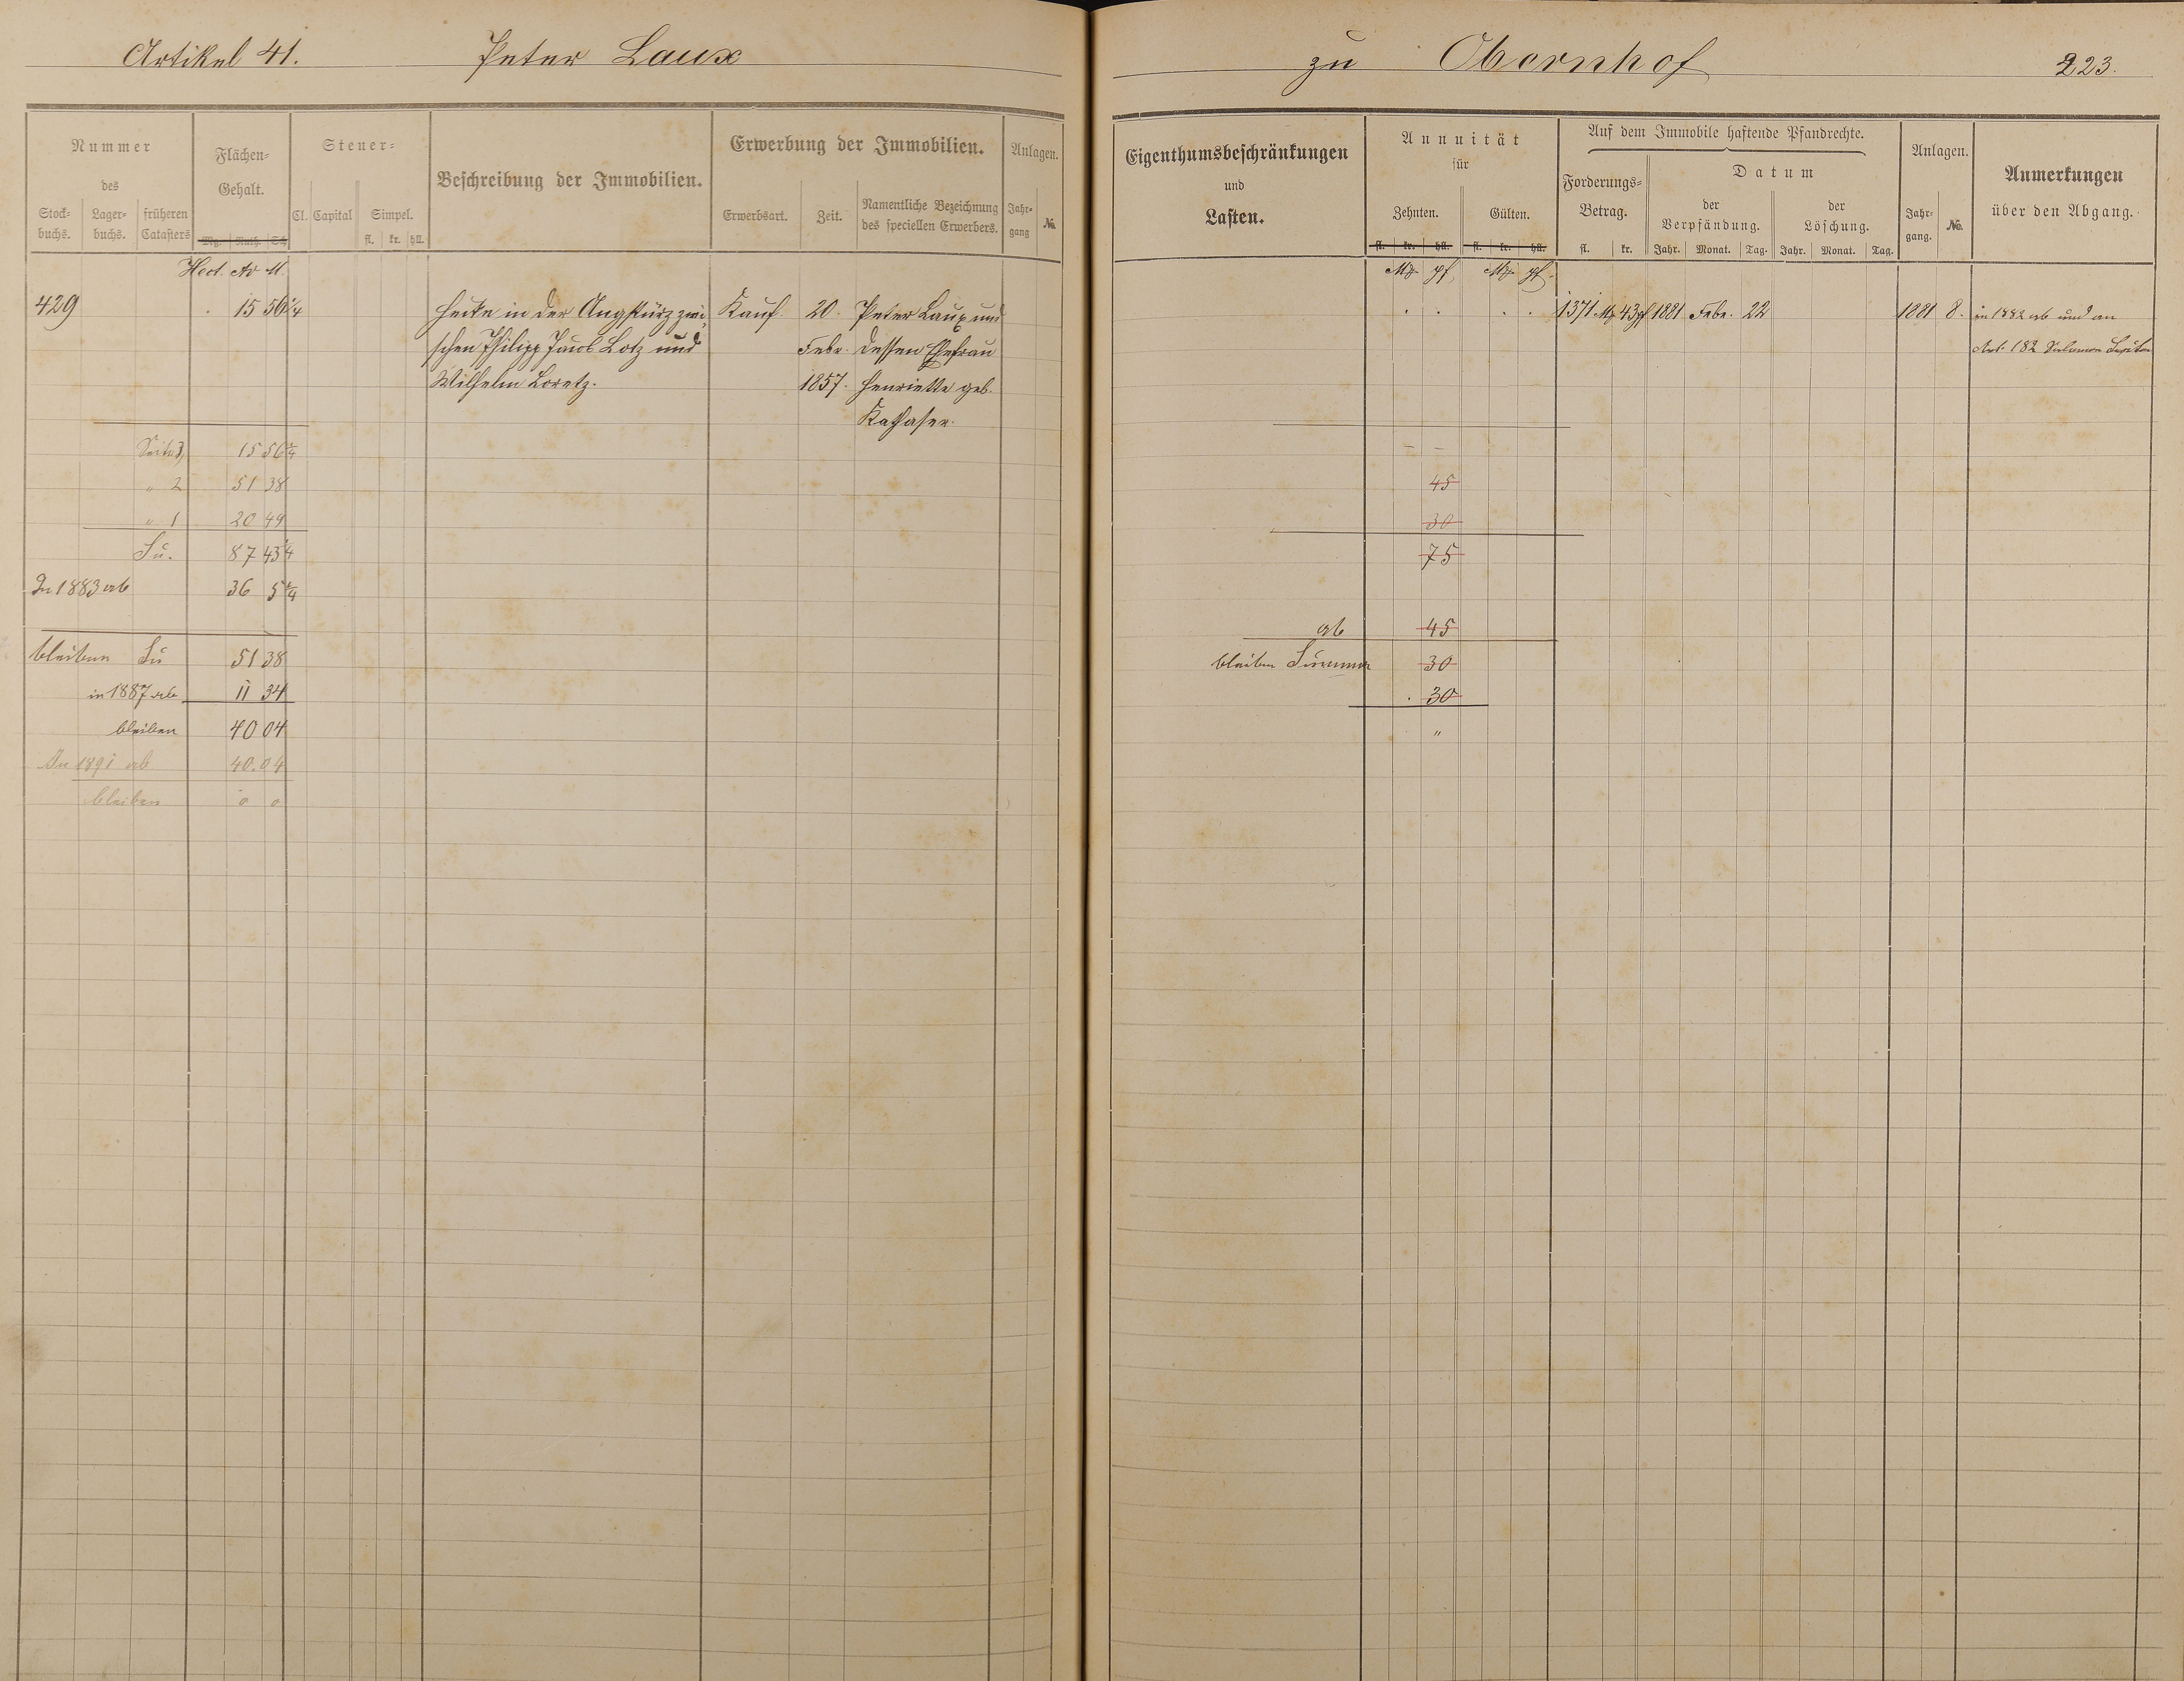 Artikel 41. Peter Laux
Nummer
des
Stock-
buchs.
Lager-
buchs.
früheren
Catasters
Flächen-
Gehalt.
Mg. Ruth. Sch
Steuer-
Cl. Capital Simpel.
fl. kr. hll.
Beschreibung der Immobilien.
Erwerbung der Immobilien.
Erwerbsart. Zeit.
Namentliche Bezeichnung
des speciellen Erwerbers.
Anlagen.
Jahr-
gang
No.
Hect. Ar M.
429 15 56 1/4 Hecke in der zwi- Kauf 20. Peter Laux und
schen Philipp Jacob Lotz und Febr. dessen Ehefrau
Wilhelm Loretz. 1857. Henriette geb.
Seite 3, 15 56 1/4
" 2 51 38
" 1 20 49
Su. 87 43 1/4
In 1883 ab 36 5 1/4
bleiben Su 51 38
in 1887 ab 11 34
bleiben 40 04
In 1891 ab 40.04
bleiben 0 0
zu Obernhof 223.
Eigenthumsbeschränkungen
und
Lasten.
Annuität
für
Zehnten. Gülten.
fl. kr. hll. fl. kr. hll.
Auf dem Immobile haftende Pfandrechte.
Forderungs-
Betrag.
fl. kr.
Datum
der
Verpfändung.
Jahr. Monat. Tag.
der
Löschung.
Jahr. Monat. Tag.
Anlagen.
Jahr-
gang.
No.
Anmerkungen
über den Abgang.
Mk pf Mk pf.
. . . . 1371 Mk 43 pf 1881 Febr. 22 1881 8. in 1882 ab und an
Art. 182 Salomon
- -
45
30
75
ab 45
bleiben Summe 30
. 30
"